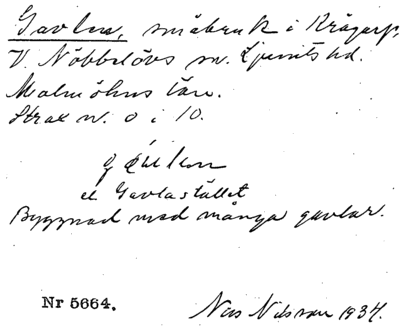 Gavlen, småbruk i Krågarp,
V. Nöbbelövs sn. Ljunits hd.
Malmöhus län.
Strax n. o i 10.
el Gavlastället
Byggnad med många gavlar.
Nr 5664. Nils Nilsson 1934.